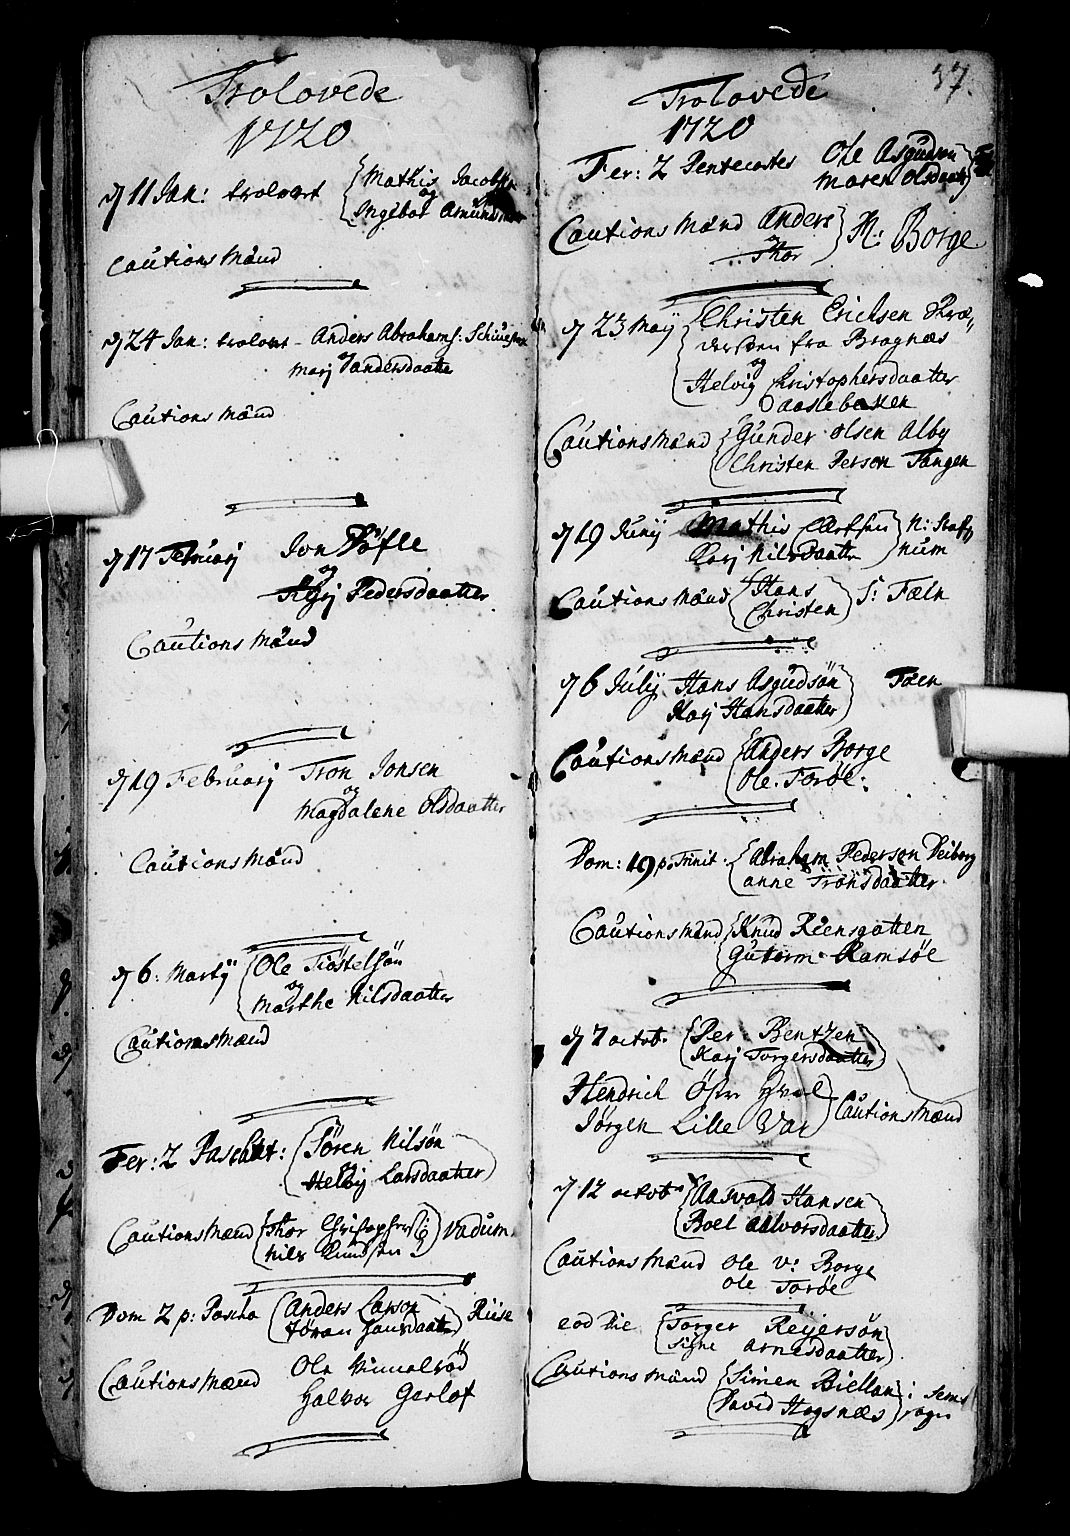 Trolovede
1720
d 11 Jan: trolovet Mathis Jacobsen
og
Ingebor Amundsdaatter
Cautions Mænd
d 24 Jan: trolovet - Anders Abrahams:
og
Marj Andersdaatter
Cautions Mænd
d 17 Februarj Jon
og
Karj Pedersdaatter
Cautions Mænd
d 19 Februarj Tron Jonsen
og
Magdalene Olsdaatter
Cautions Mænd
d 6: Martij Ole Tiøstelsøn
og
Marthe Nilsdaatter
Cautions Mænd
Fer: 2 Paschat: Søren Nilsøn
og
Helvig Larsdaatter
Cautions Mænd Thor Christophers: Vadum
Nils Knudsen
Dom 2 p: Pascha Anders Larson Riise
Jøran Hansdaatter
Cautions Mænd Ole Himmelrød
Halvor Gerlof
37.
Trolovede
1720
Fer: 2 Pentecostes Ole Asgudsøn
Maren Olsdaatter
Cautions Mænd Anders N: Borge
og
Thor
d 23 Maij Christen Erichsen
fra Bragnæs
og
Helvig Christophersdaatter
Daaslebakken
Cautions Mænd Gunder Olsen Alby
Christen Person Tangen
d 19 Junij Mathis N:
Karj Nilsdaatter num
Cautions Mænd Hans S: Fæln
Christen
d 6 Julij Hans AsgudsønFøen
Karj Hansdaatter
Cautions Mænd Anders Borge
Ole Torøe:
Dom: 19 p. Trinit. Abraham Pederson
Anne Tronsdaatter
Cautions Mænd Knud Riensgatten
Guttorm Ramsøe
d 7 octob. Per Bentzen
Karj Torgersdaatter
Hendrich Østr Hval
Jørgen Lille Var Cautions Mænd
d 12 octob Aasvold Hansen
Boel Halvorsdaatter
Cautions Mænd Ole v: Borge
Ole Torøe
eod Die Torger Reyersøn
Signe Arnesdaatter
Cautions Mænd Simen Biellan i Sems
David Hogsnæs sogn